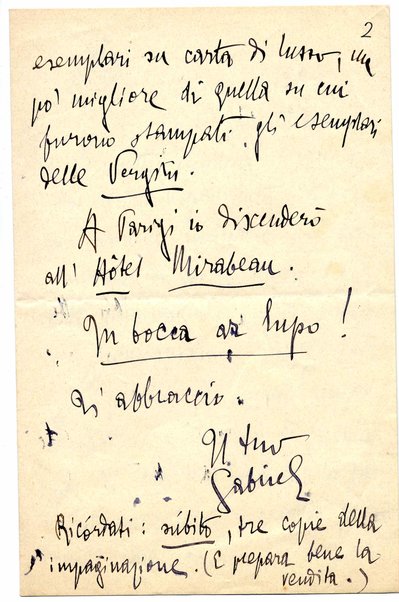 2
esemplari su carta di lusso, un
po' migliore di quella su cui
furono stampati gli esemplari
delle Vergini.
A Parigi io discenderò
all' Hôtel Mirabeau.
In bocca al lupo!
Ti abbraccio.
Il tuo
Gabriel
Ricórdati: sùbito, tre copie della
impaginazione. (E prepara bene la
vendita.)